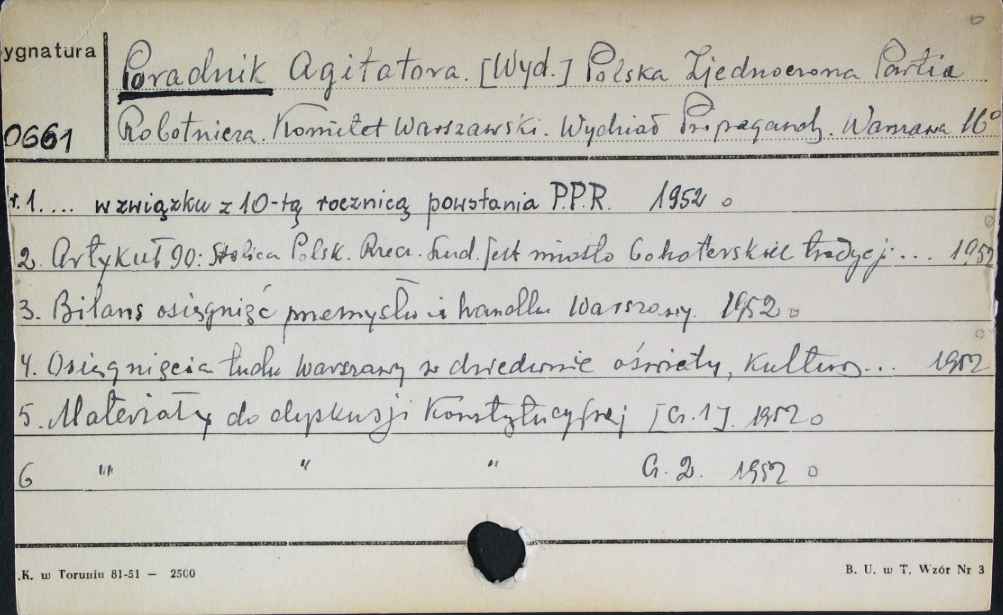 ygnatura
Poradnik Agitatora. [Wyd.] Polska Zjednoczona Partia
0661 Robotnicza. Komitet Warszawski. Wydział Propagandy. Warszawa 16°
r. 1.... w związku z 10-tą rocznicą powstania P.P.R. 1952
2. Artykuł 90: Stolica Polsk. Rzecz. Lud. jest miasto bohaterskiej tradycji... 1952
3. Bilans osiągnięć przemysłu i handlu Warszawy. 1952
4. Osiągnięcia ludu Warszawy w dziedzinie oświaty, kultury... 1952
5. Materiały do dyskusji Konstytucyjnej [Cz. 1]. 1952
6 " " " Cz. 2. 1952
.K. w Toruniu 81-51 — 2500
B. U. w T. Wzór Nr 3